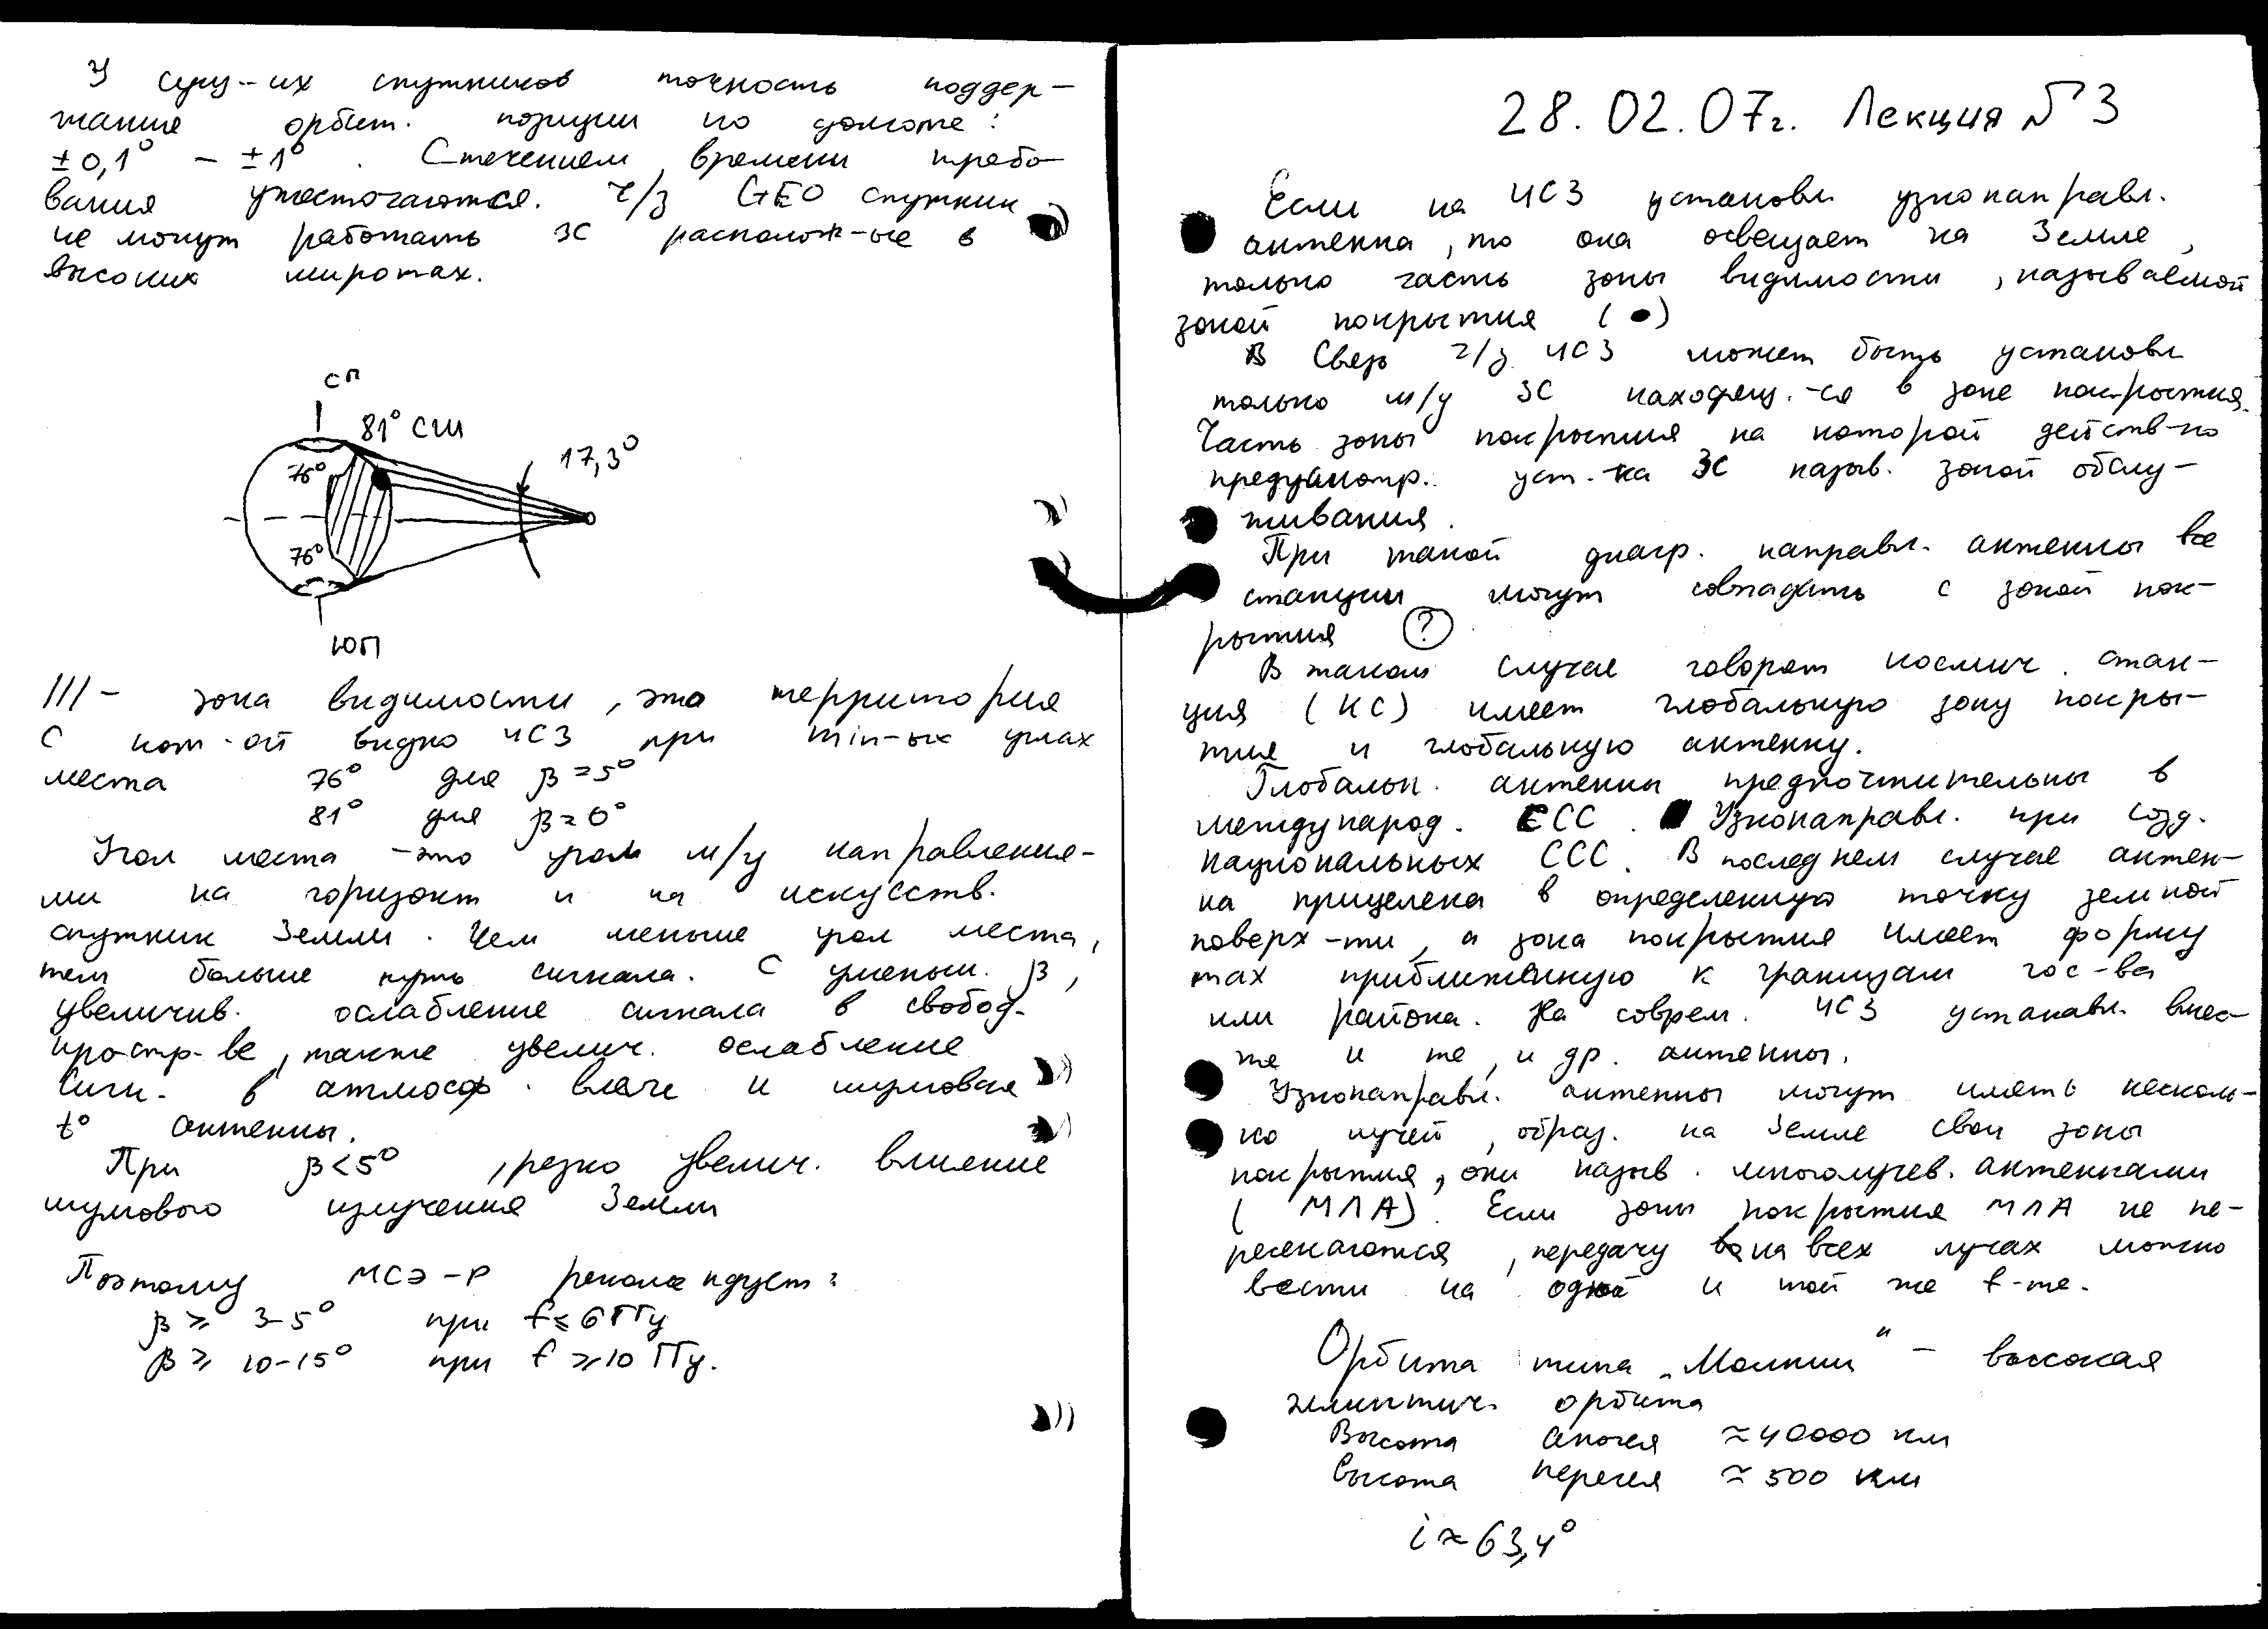 У сущ-их спутников точность поддер-
жание орбит. позиции по долготе:
±0,1° - ±1°. С течением времени требо-
вания ужесточаются. Ч/з GEO спутник
не могут работать ЗС располож-ые в
высоких широтах.
СП
81° СШ
17,3°
76°
76°
ЮП
/// - зона видимости, это территория
с кот-ой видно ИСЗ при min-ых углах
места 76° для β = 5°
81° для β = 0°
Угол места - это угол м/у направления-
ми на горизонт и на искусств.
спутник Земли. Чем меньше угол места,
тем больше путь сигнала. С уменьш. β,
увеличив. ослабление сигнала в свобод-
простр-ве, также увелич. ослабление
сигн. в атмосф. влаге и шумовая
t° антенны.
При β<5°, резко увелич. влияние
шумового излучения Земли
Поэтому МСЭ-Р рекомендует:
β ⩾ 3-5° при f ⩽ 6 ГГц
β ⩾ 10-15° при f ⩾ 10 ГГц.
28.02.07г. Лекция №3
Если на ИСЗ установл. узконаправл.
антенна, то она освещает на Земле,
только часть зоны видимости, называемой
зоной покрытия (●)
Связь ч/з ИСЗ может быть установл
только м/у ЗС находящ.-ся в зоне покрытия.
Часть зоны покрытия на которой действ-но
предусмотр. уст-ка ЗС назыв. зоной обслу-
живания.
При такой диагр. направл. антенны все
станции могут совпадать с зоной пок-
рытия (?)
В таком случае говорят космич. стан-
ция (КС) имеет глобальную зону покры-
тия и глобальную антенну.
Глобальн. антенны предпочтительны в
международ. ССС. Узконаправл. при созд.
национальных ССС. В последнем случае антен-
на прицелена в определенную точку земной
поверх-ти, а зона покрытия имеет форму
max приближенную к границам гос-ва
или района. На соврем. ИСЗ устанавл. вмес-
те и те, и др. антенны.
Узконаправл. антенны могут иметь несколь-
ко лучей, образ. на Земле свои зоны
покрытия, они назыв. многолучев. антеннами
(МЛА). Если зоны покрытия МЛА не пе-
ресекаются, передачу на всех лучах можно
вести на одной и той же f-те.
Орбита типа „Молния" - высокая
эллиптич. орбита
Высота апогея ≈ 40000 км
Высота перегея ≈ 500 км
i ≈ 63,4°